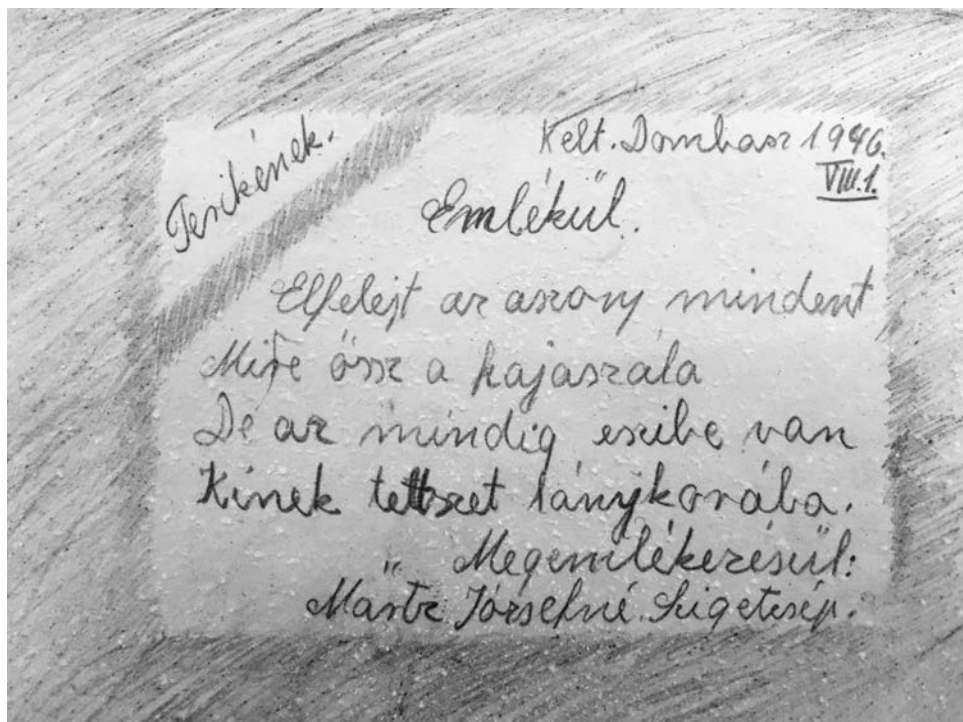 Terikének.
Kelt. Dombasz 1946.
VIII.1.
Emlékül.
Elfelejt az aszony mindent
Mire össz a hajaszála
De az mindig eszibe van
Kinek tettszet lánykorába.
Megemlékezésül:
Józsefné. Szigetcsép.